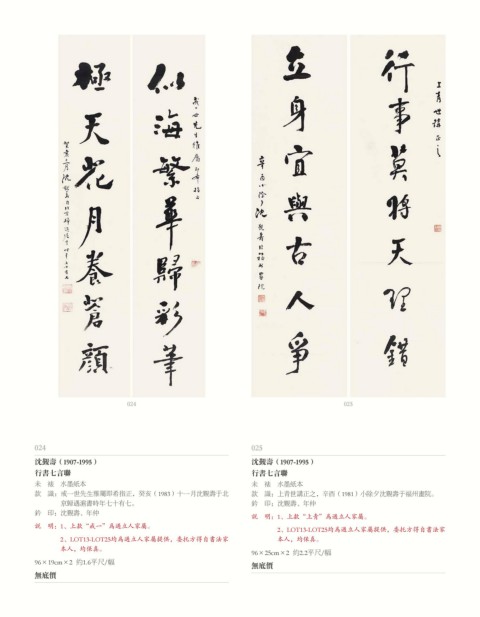 似海繁華歸彩筆
極天花月養蒼顏
024
行事莫將天理錯
上青世講正之
立身宜與古人爭
025
024
沈觀壽（1907-1995）
行書七言聯
未　裱　水墨紙本
款　識：戎一世先生雅屬即希指正，癸亥（1983）十一月沈觀壽於北
京歸適滬書時年七十有七。
鈐　印：沈觀壽、年仲
說　明：1、上款“戎一”為過立人家屬。
2、LOT13-LOT25均為過立人家屬提供，委托方得自書法家
本人，均保真。
96×19cm×2 約1.6平尺/幅
無底價
025
沈觀壽（1907-1995）
行書七言聯
未　裱　水墨紙本
款　識：上青世講正之，辛酉（1981）小除夕沈觀壽于福州畫院。
鈐　印：沈觀壽、年仲
說　明：1、上款“上青”為過立人家屬。
2、LOT13-LOT25均為過立人家屬提供，委托方得自書法家
本人，均保真。
96×25cm×2 約2.2平尺/幅
無底價